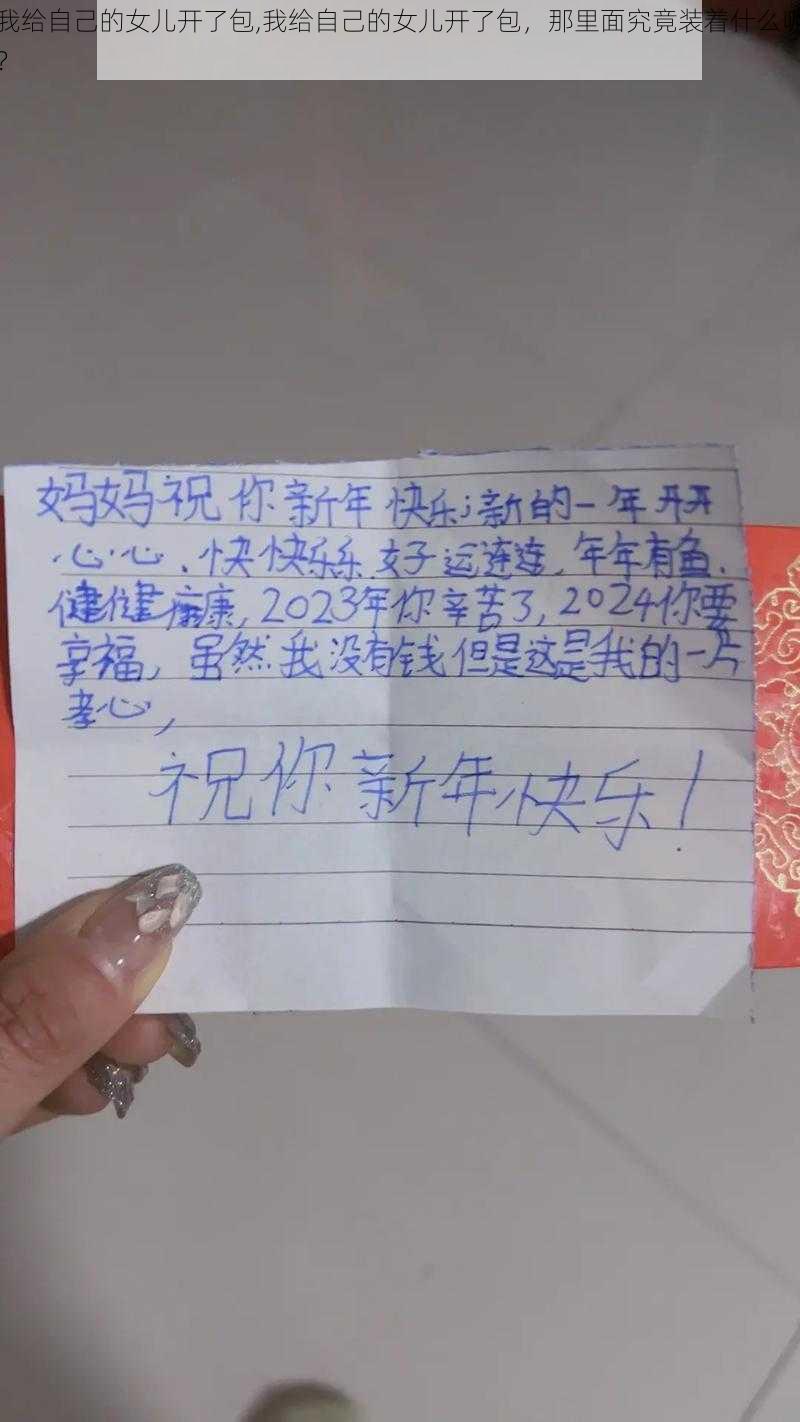 我给自己的女儿开了包,我给自己的女儿开了包，那里面究竟装着什么呢
?
妈妈祝你新年快乐;新的一年开开
心心、快快乐乐好运连连、年年有鱼、
健健康康,2023年你辛苦了,2024你要
享福,虽然我没有钱但是这是我的一片
孝心,
祝你新年快乐!